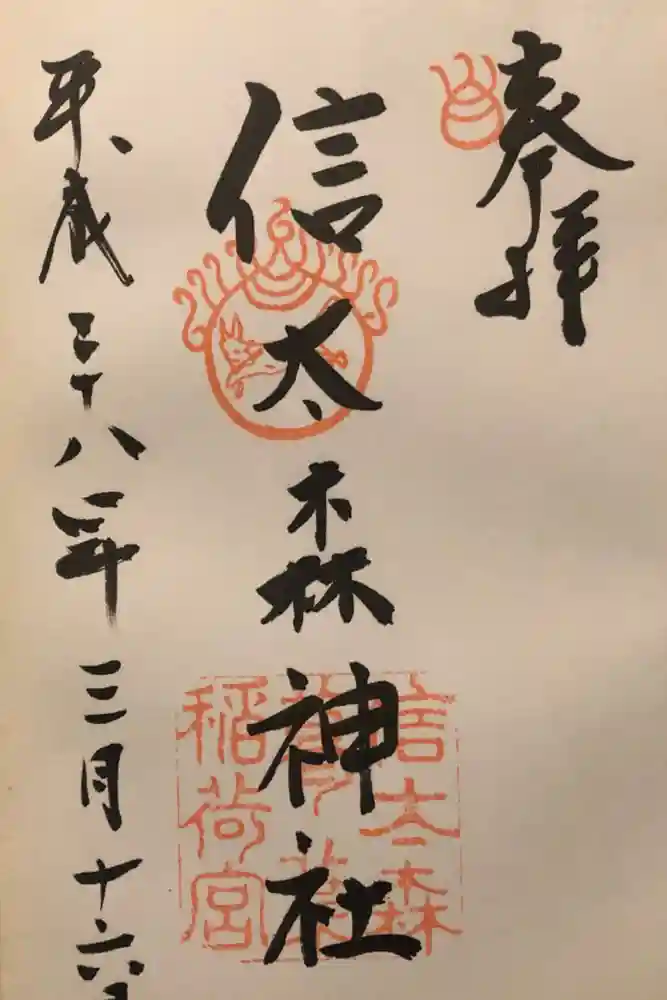 奉拝
信太森神社
平成二十八年三月十六日
信太森
稲荷宮